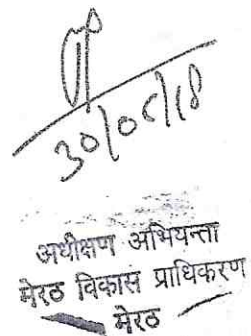 30/05/18
अधीक्षण अभियन्ता
मेरठ विकास प्राधिकरण
मेरठ